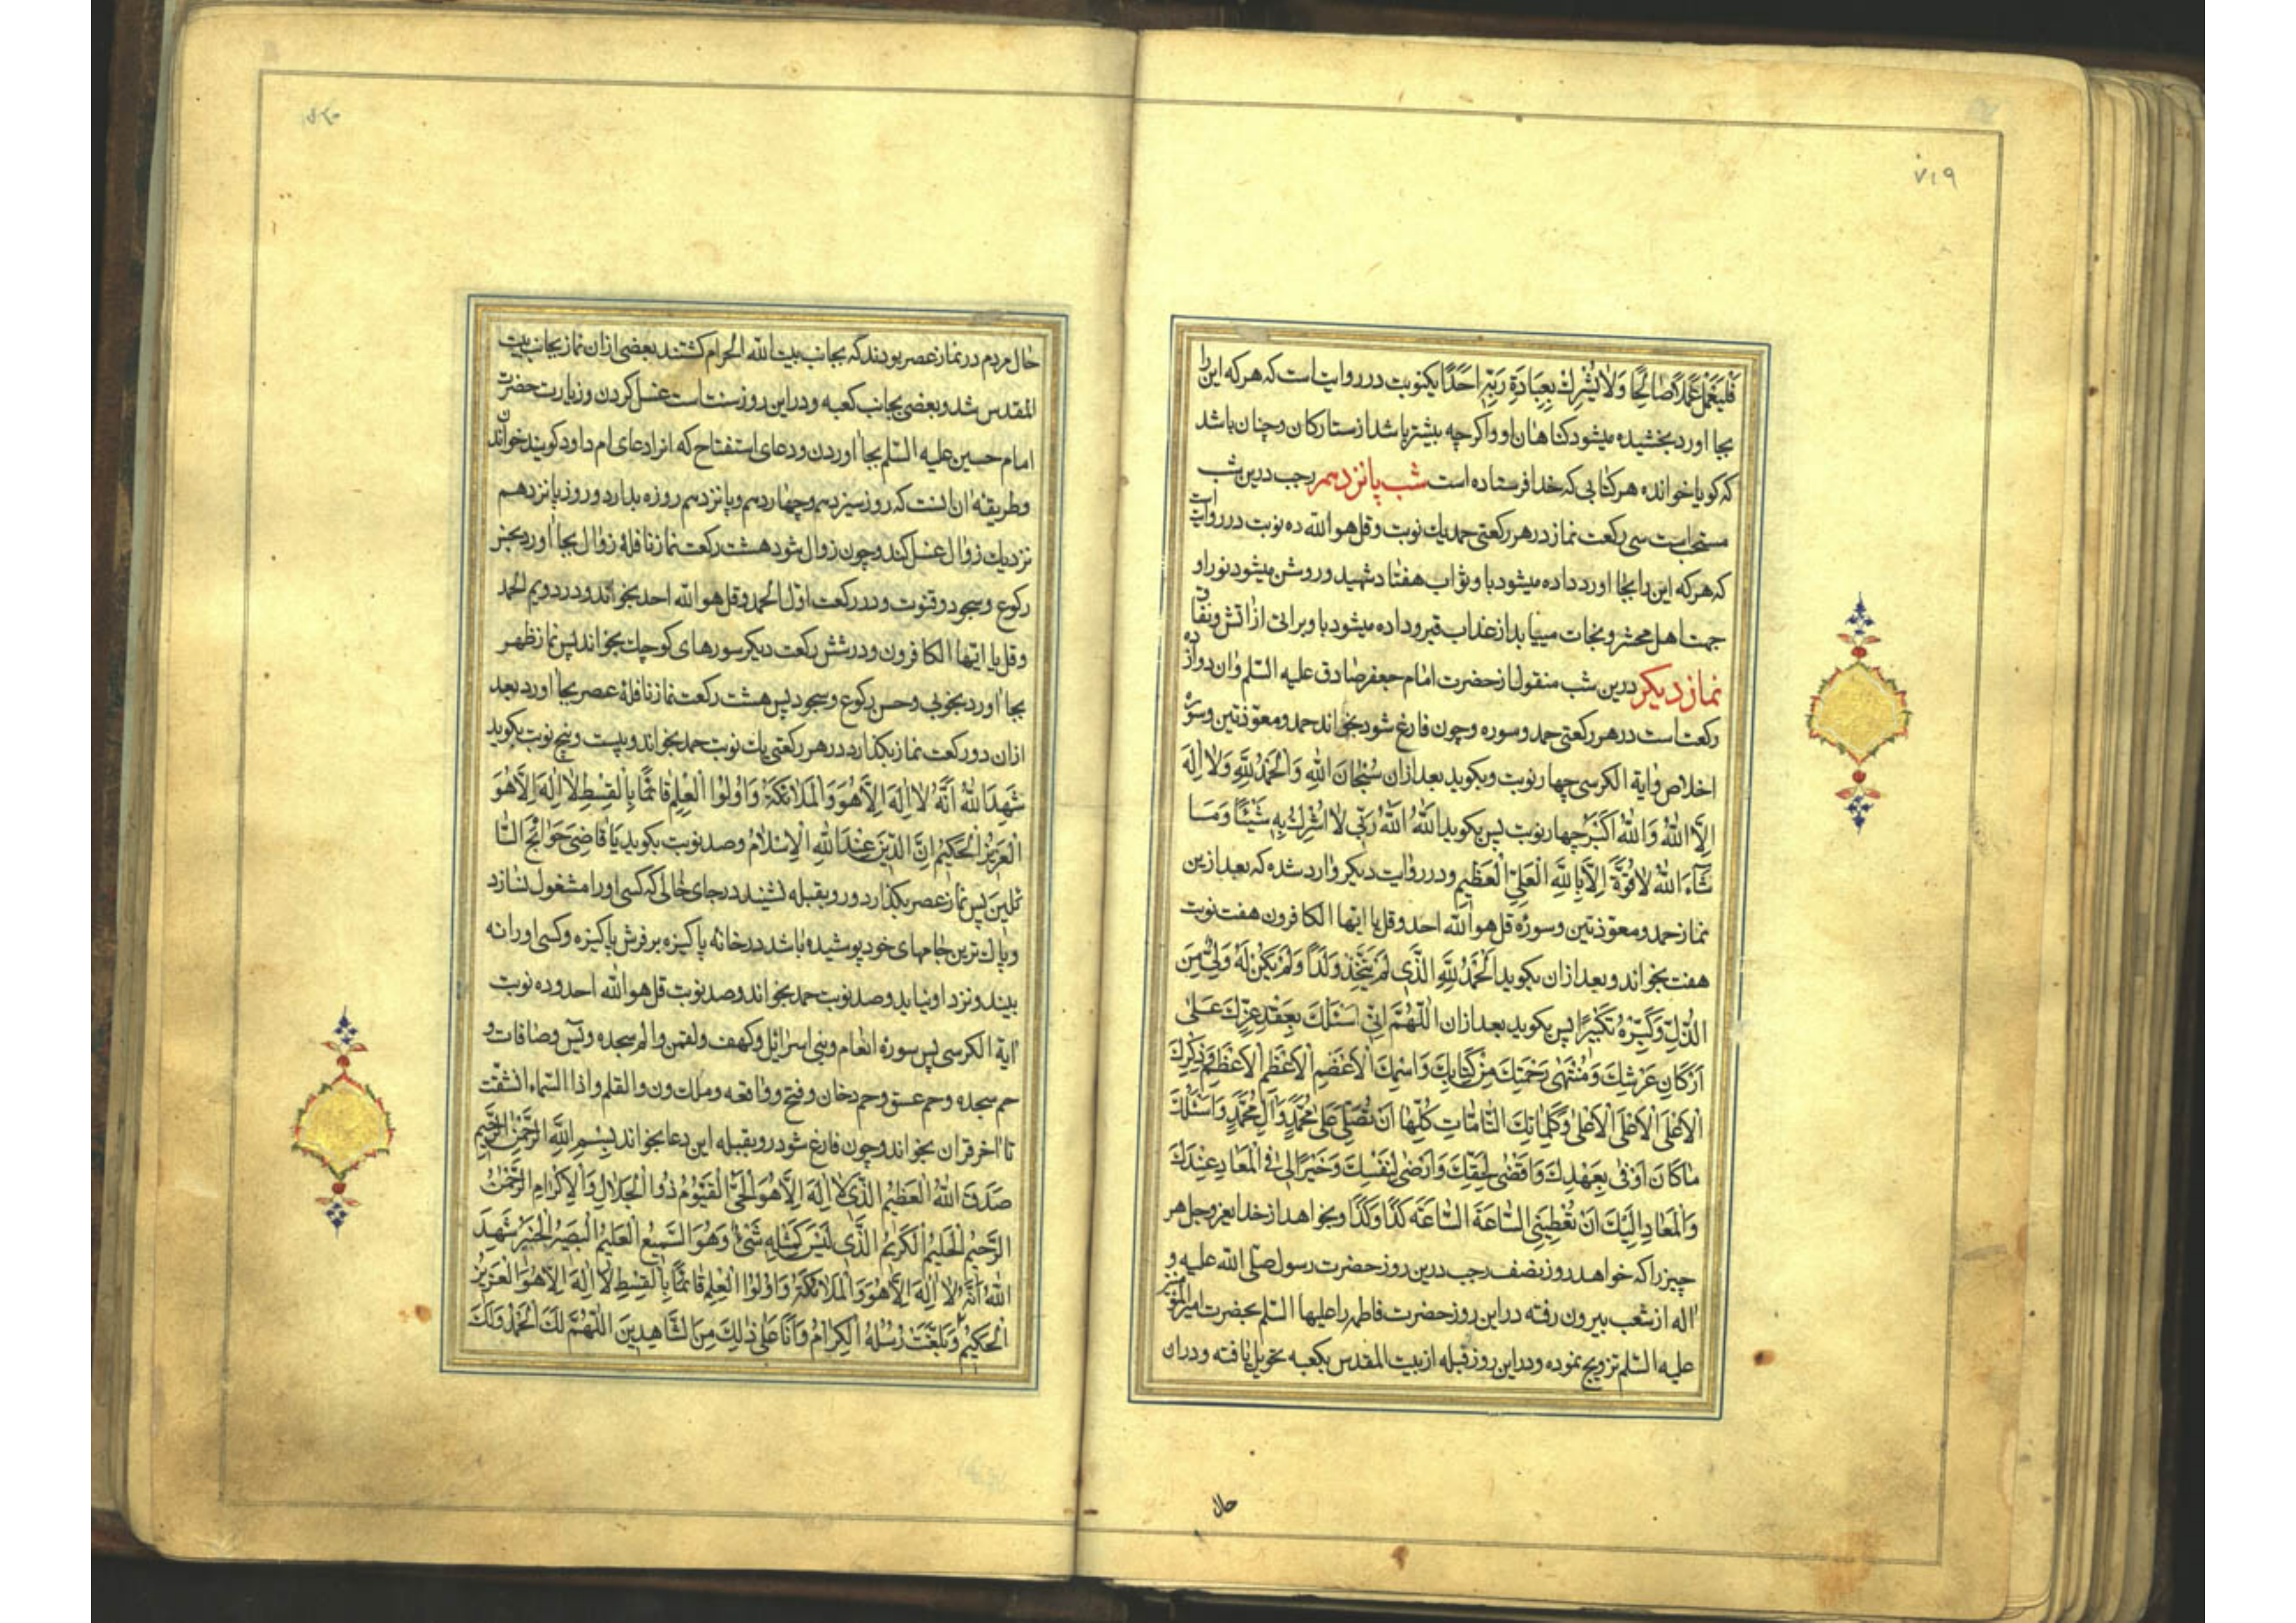 ۷۱۹
فَلْیَعْمَلْ عَمَلًا صَالِحًا وَلَا یُشْرِكْ بِعِبَادَةِ رَبِّهِ اَحَدًا یکنوبت در روایت است که هر که این را
بجا اورد بخشیده میشود کناهان او و اکرچه بیشتر باشد از ستارکان و چنان باشد
که کویا خوانده هر کتابی که خدا فرستاده است شب پانزدهم رجب درین شب
مستحب است سی رکعت نماز در هر رکعتی حمد یك نوبت و قل هو الله ده نوبت در روایت
که هر که این را بجا اورد داده میشود باو ثواب هفتاد شهید و روشن میشود نور او
جهت اهل محشر و نجات مییابد از عذاب قبر و داده میشود باو براتی از اتش و نفاق
نماز دیکر درین شب منقول از حضرت امام جعفر صادق علیه السلم و ان دوازده
رکعت است در هر رکعتی حمد و سوره و چون فارغ شود بخواند حمد و معوّذتین و سورۀ
اخلاص و ایة الکرسی چهار نوبت و بکوید بعد ازان سُبْحَانَ اللهِ وَالْحَمْدُ لِلّٰهِ وَلَا اِلٰهَ
اِلَّا اللهُ وَاللهُ اَکْبَرُ چهار نوبت پس بکوید اَللهُ اَللهُ رَبّی لَا اُشْرِكُ بِهِ شَیْئًا وَمَا
شَاءَ اللهُ لَا قُوَّةَ اِلَّا بِاللّٰهِ الْعَلِیِّ الْعَظِیمِ و در روایت دیکر وارد شده که بعد ازین
نماز حمد و معوّذتین و سورۀ قل هو الله احد و قل یا ایها الکافرون هفت نوبت
هفت بخواند و بعد ازان بکوید اَلْحَمْدُ لِلّٰهِ الَّذی لَمْ یَتَّخِذْ وَلَدًا وَلَمْ یَکُنْ لَهُ وَلِیٌّ مِنَ
الذُّلِّ وَکَبِّرْهُ تَکْبیرًا پس بکوید بعد ازان اَللّٰهُمَّ اِنّی اَسْئَلُكَ بِعَقْدِ عِزِّكَ عَلٰی
اَرْکَانِ عَرْشِكَ وَمُنْتَهٰی رَحْمَتِكَ مِنْ کِتَابِكَ وَاسْمِكَ الْاَعْظَمِ الْاَعْظَمِ الْاَعْظَمِ وَذِکْرِكَ
الْاَعْلَی الْاَعْلَی الْاَعْلٰی وَکَلِمَاتِكَ التَّامَّاتِ کُلِّهَا اَنْ تُصَلِّیَ عَلٰی مُحَمَّدٍ وَالِ مُحَمَّدٍ وَاَسْئَلُكَ
مَا کَانَ اَوْفٰی بِعَهْدِكَ وَاَقْضٰی لِحَقِّكَ وَاَرْضٰی لِنَفْسِكَ وَخَیْرًا لی فِی الْمَعَادِ عِنْدَكَ
وَالْمَعَادِ اِلَیْكَ اَنْ تُعْطِیَنِی السَّاعَةَ السَّاعَةَ کَذَا وَکَذَا و بخواهد از خدایعز و جل هر
چیز را که خواهد روز نصف رجب درین روز حضرت رسول صلّی الله علیه و
اله از شعب بیرون رفته در این روز حضرت فاطمه را علیها السلم بحضرت امیر المؤمنین
علیه السلم تزویج نموده و در این روز قبله از بیت المقدس بکعبه تحویل یافته و در ان
حال
حال مردم در نماز عصر بودند که بجانب بیت الله الحرام کشتند بعضی از ان نماز بجانب بیت
المقدس شد و بعضی بجانب کعبه و در این روز سنت است غسل کردن و زیارت حضرت
امام حسین علیه السلم بجا اوردن و دعای استفتاح که انرا دعای ام داود کویند خواندن
و طریقه ان انست که روز سیزدهم و چهاردهم و پانزدهم روزه بدارد و روز پانزدهم
نزدیك زوال غسل کند و چون زوال شود هشت رکعت نماز نافلۀ زوال بجا اورد بحسن
رکوع و سجود و قنوت و در رکعت اوّل الحمد و قل هو الله احد بخواند و در دویم الحمد
و قل یا ایها الکافرون و در شش رکعت دیکر سورهای کوچك بخواند پس نماز ظهر
بجا اورد بخوبی و حسن رکوع و سجود پس هشت رکعت نماز نافلۀ عصر بجا اورد بعد
ازان دو رکعت نماز بکذارد در هر رکعتی یك نوبت حمد بخواند و بیست و پنج نوبت بکوید
شَهِدَ اللهُ اَنَّهُ لَا اِلٰهَ اِلَّا هُوَ وَالْمَلَائِکَةُ وَاُولُوا الْعِلْمِ قَائِمًا بِالْقِسْطِ لَا اِلٰهَ اِلَّا هُوَ
الْعَزِیزُ الْحَکِیمُ اِنَّ الدِّینَ عِنْدَ اللهِ الْاِسْلَامُ و صد نوبت بکوید یَا قَاضِیَ حَوَائِجِ السَّا
ئِلینَ پس نماز عصر بکذارد و رو بقبله نشیند در جای خالی که کسی او را مشغول نسازد
و پاك ترین جامهای خود پوشیده باشد در خانۀ پاکیزه بر فرش پاکیزه و کسی او را نه
بیند و نزد او نیاید و صد نوبت حمد بخواند و صد نوبت قل هو الله احد و ده نوبت
ایة الکرسی پس سورۀ انعام و بنی اسرائل و کهف و لقمن و الم سجده و یٓس و صافات و
حم سجده و حم عسق و حم دخان و فتح و واقعه و ملك و ن و القلم و اذا السّماء انشقت
تا اخر قران بخواند و چون فارغ شود رو بقبله این دعا بخواند بِسْمِ اللهِ الرَّحْمٰنِ الرَّحِیمِ
صَدَقَ اللهُ الْعَظِیمُ الَّذی لَا اِلٰهَ اِلَّا هُوَ الْحَیُّ الْقَیُّومُ ذُوا الْجَلَالِ وَالْاِکْرَامِ الرَّحْمٰنُ
الرَّحِیمُ الْحَلِیمُ الْکَرِیمُ الَّذی لَیْسَ کَمِثْلِهِ شَیْءٌ وَهُوَ السَّمِیعُ الْعَلِیمُ الْبَصِیرُ الْخَبِیرُ شَهِدَ
اللهُ اَنَّهُ لَا اِلٰهَ اِلَّا هُوَ وَالْمَلَائِکَةُ وَاُولُوا الْعِلْمِ قَائِمًا بِالْقِسْطِ لَا اِلٰهَ اِلَّا هُوَ الْعَزِیزُ
الْحَکِیمُ وَبَلَّغَتْ رُسُلُهُ الْکِرَامُ وَاَنَا عَلٰی ذٰلِكَ مِنَ الشَّاهِدِینَ اَللّٰهُمَّ لَكَ الْحَمْدُ وَلَكَ